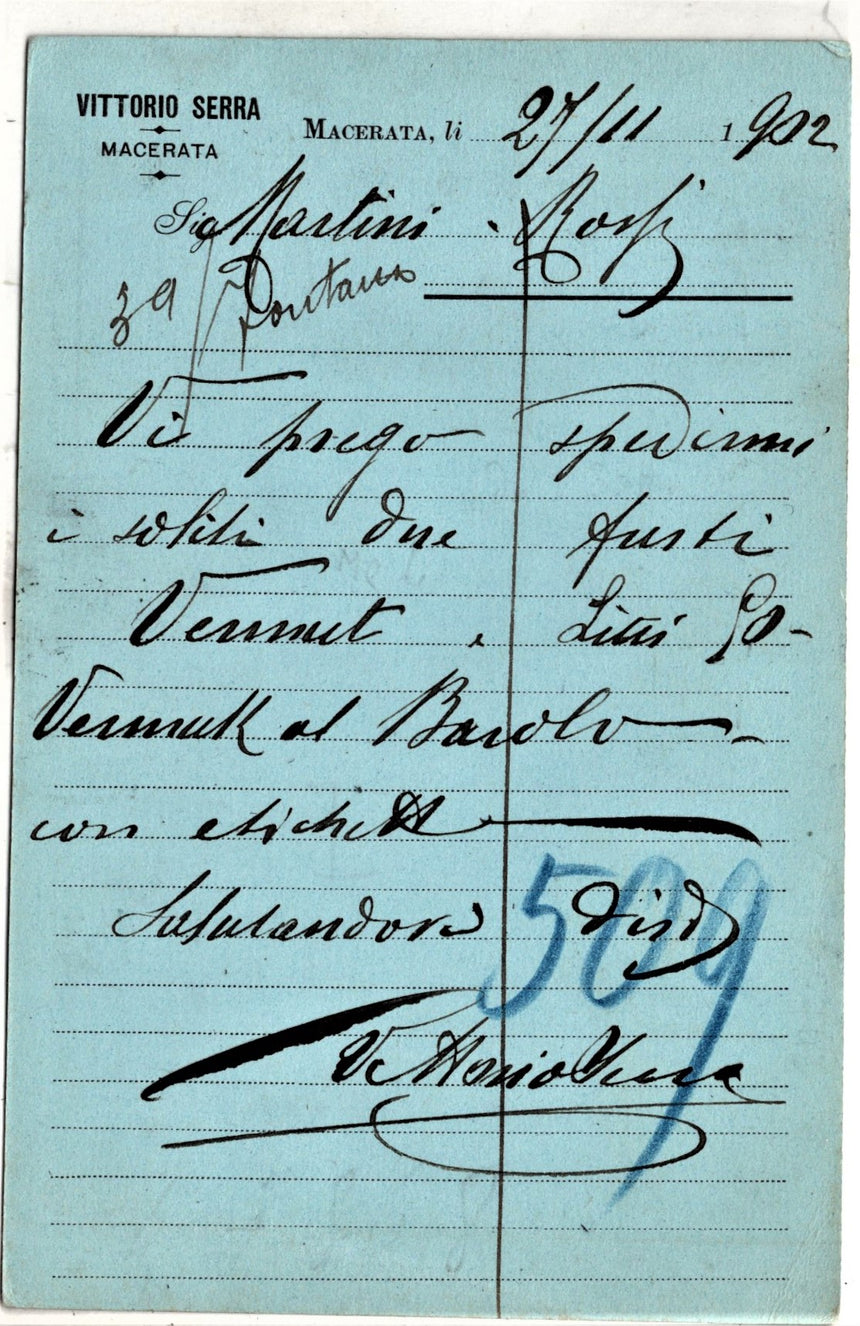 VITTORIO SERRA
MACERATA
MACERATA, li 27/11 1902
Sig Martini & Rossi
Vi prego spedirmi
i soliti due fusti
Vermut e Litri 50
Vermutt al Barolo
con etichett
Salutandovi
Vittorio Serra
509